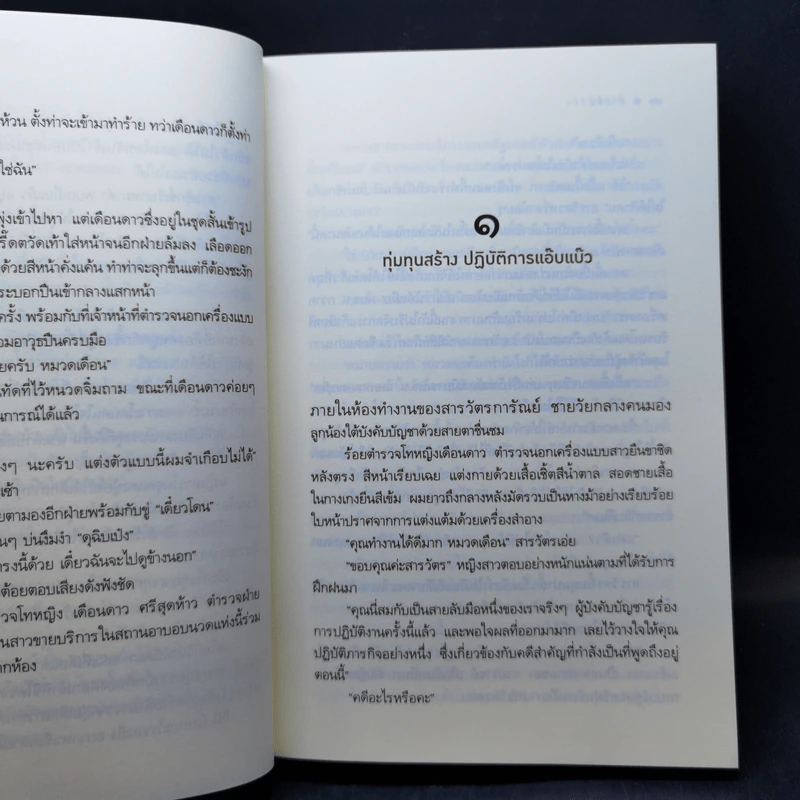 ห้วน ตั้งท่าจะเข้ามาทำร้าย ทว่าเดือนดาวก็ตั้งท่า
ใช่ฉัน”
พุ่งเข้าไปหา แต่เดือนดาวซึ่งอยู่ในชุดสั้นเข้ารูป
รี๊ดตวัดเท้าใส่หน้าจนอีกฝ่ายล้มลง เลือดออก
ด้วยสีหน้าคั่งแค้น ทำท่าจะลุกขึ้นแต่ก็ต้องชะงัก
ระบอกปืนเข้ากลางแสกหน้า
ครั้ง พร้อมกับที่เจ้าหน้าที่ตำรวจนอกเครื่องแบบ
อมอาวุธปืนครบมือ
ยครับ หมวดเดือน”
ทัดที่ไว้หนวดจิ๋มถาม ขณะที่เดือนดาวค่อยๆ
นการณ์ได้แล้ว
งๆ นะครับ แต่งตัวแบบนี้ผมจำเกือบไม่ได้”
เซ้า
ยตามองอีกฝ่ายพร้อมกับขู่ “เดี๋ยวโดน”
นๆ บ่นงึมงำ “ดุฉิบเป๋ง”
ารงนี้ด้วย เดี๋ยวฉันจะไปดูข้างนอก”
ต้อยตอบเสียงดังฟังชัด
วจโทหญิง เดือนดาว ศรีสุดห้าว ตำรวจฝ่าย
นสาวขายบริการในสถานอาบอบนวดแห่งนี้ร่วม
ากห้อง
๑
ทุ่มทุนสร้าง ปฏิบัติการแอ๊บแบ๊ว
ภายในห้องทำงานของสารวัตรการัณย์ ชายวัยกลางคนมอง
ลูกน้องใต้บังคับบัญชาด้วยสายตาชื่นชม
ร้อยตำรวจโทหญิงเดือนดาว ตำรวจนอกเครื่องแบบสาวยืนขาชิด
หลังตรง สีหน้าเรียบเฉย แต่งกายด้วยเสื้อเชิ้ตสีน้ำตาล สอดชายเสื้อ
ในกางเกงยีนสีเข้ม ผมยาวถึงกลางหลังมัดรวบเป็นหางม้าอย่างเรียบร้อย
ใบหน้าปราศจากการแต่งแต้มด้วยเครื่องสำอาง
“คุณทำงานได้ดีมาก หมวดเดือน” สารวัตรเอ่ย
“ขอบคุณค่ะสารวัตร” หญิงสาวตอบอย่างหนักแน่นตามที่ได้รับการ
ฝึกฝนมา
“คุณนี่สมกับเป็นสายลับมือหนึ่งของเราจริงๆ ผู้บังคับบัญชารู้เรื่อง
การปฏิบัติงานครั้งนี้แล้ว และพอใจผลที่ออกมามาก เลยไว้วางใจให้คุณ
ปฏิบัติภารกิจอย่างหนึ่ง ซึ่งเกี่ยวข้องกับคดีสำคัญที่กำลังเป็นที่พูดถึงอยู่
ตอนนี้”
“คดีอะไรหรือคะ”